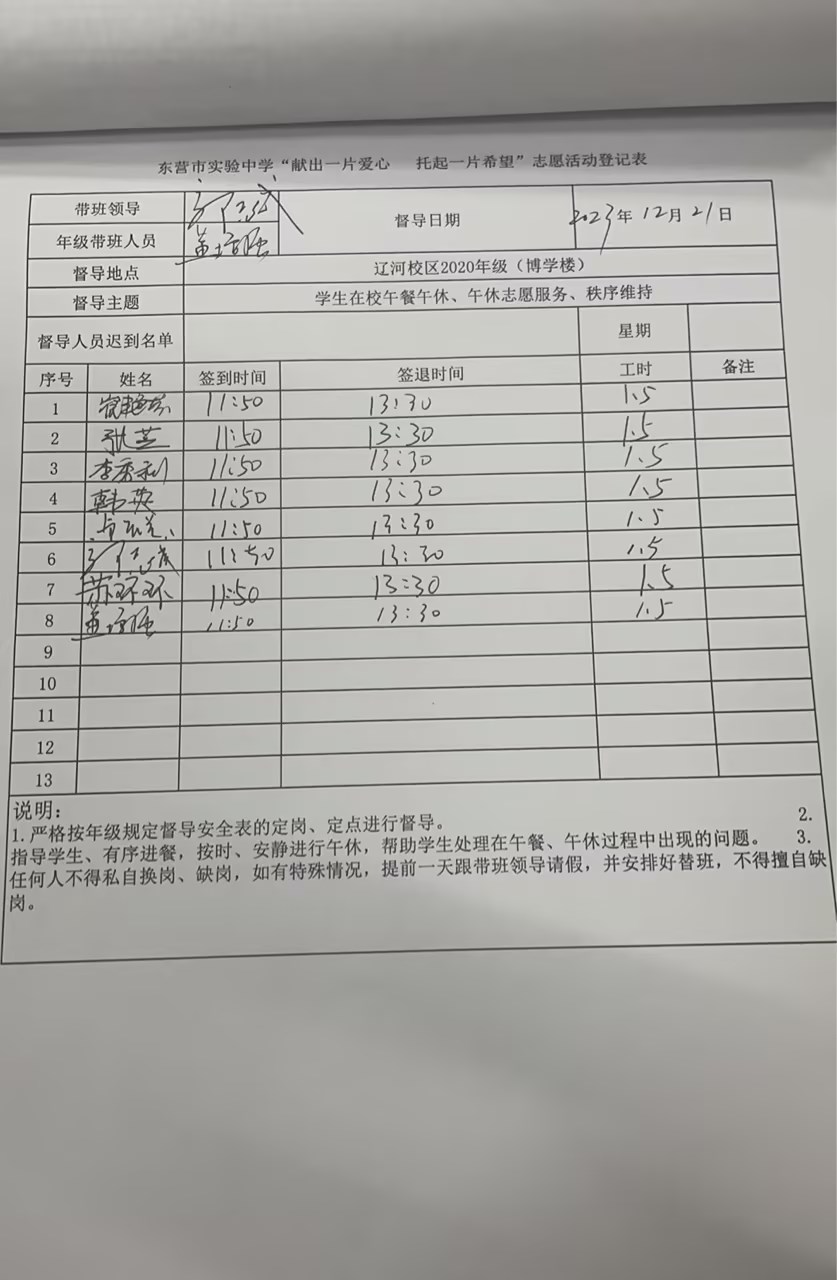 东营市实验中学“献出一片爱心 托起一片希望”志愿活动登记表
带班领导 督导日期 2023年12月21日
年级带班人员
督导地点 辽河校区2020年级（博学楼）
督导主题 学生在校午餐午休、午休志愿服务、秩序维持
督导人员迟到名单 星期
序号 姓名 签到时间 签退时间 工时 备注
1 11:50 13:30 1.5
2 11:50 13:30 1.5
3 11:50 13:30 1.5
4 韩英 11:50 13:30 1.5
5 11:50 13:30 1.5
6 11:50 13:30 1.5
7 苏环环 11:50 13:30 1.5
8 11:50 13:30 1.5
9
10
11
12
13
说明：
1. 严格按年级规定督导安全表的定岗、定点进行督导。 2.
指导学生、有序进餐，按时、安静进行午休，帮助学生处理在午餐、午休过程中出现的问题。 3.
任何人不得私自换岗、缺岗，如有特殊情况，提前一天跟带班领导请假，并安排好替班，不得擅自缺
岗。